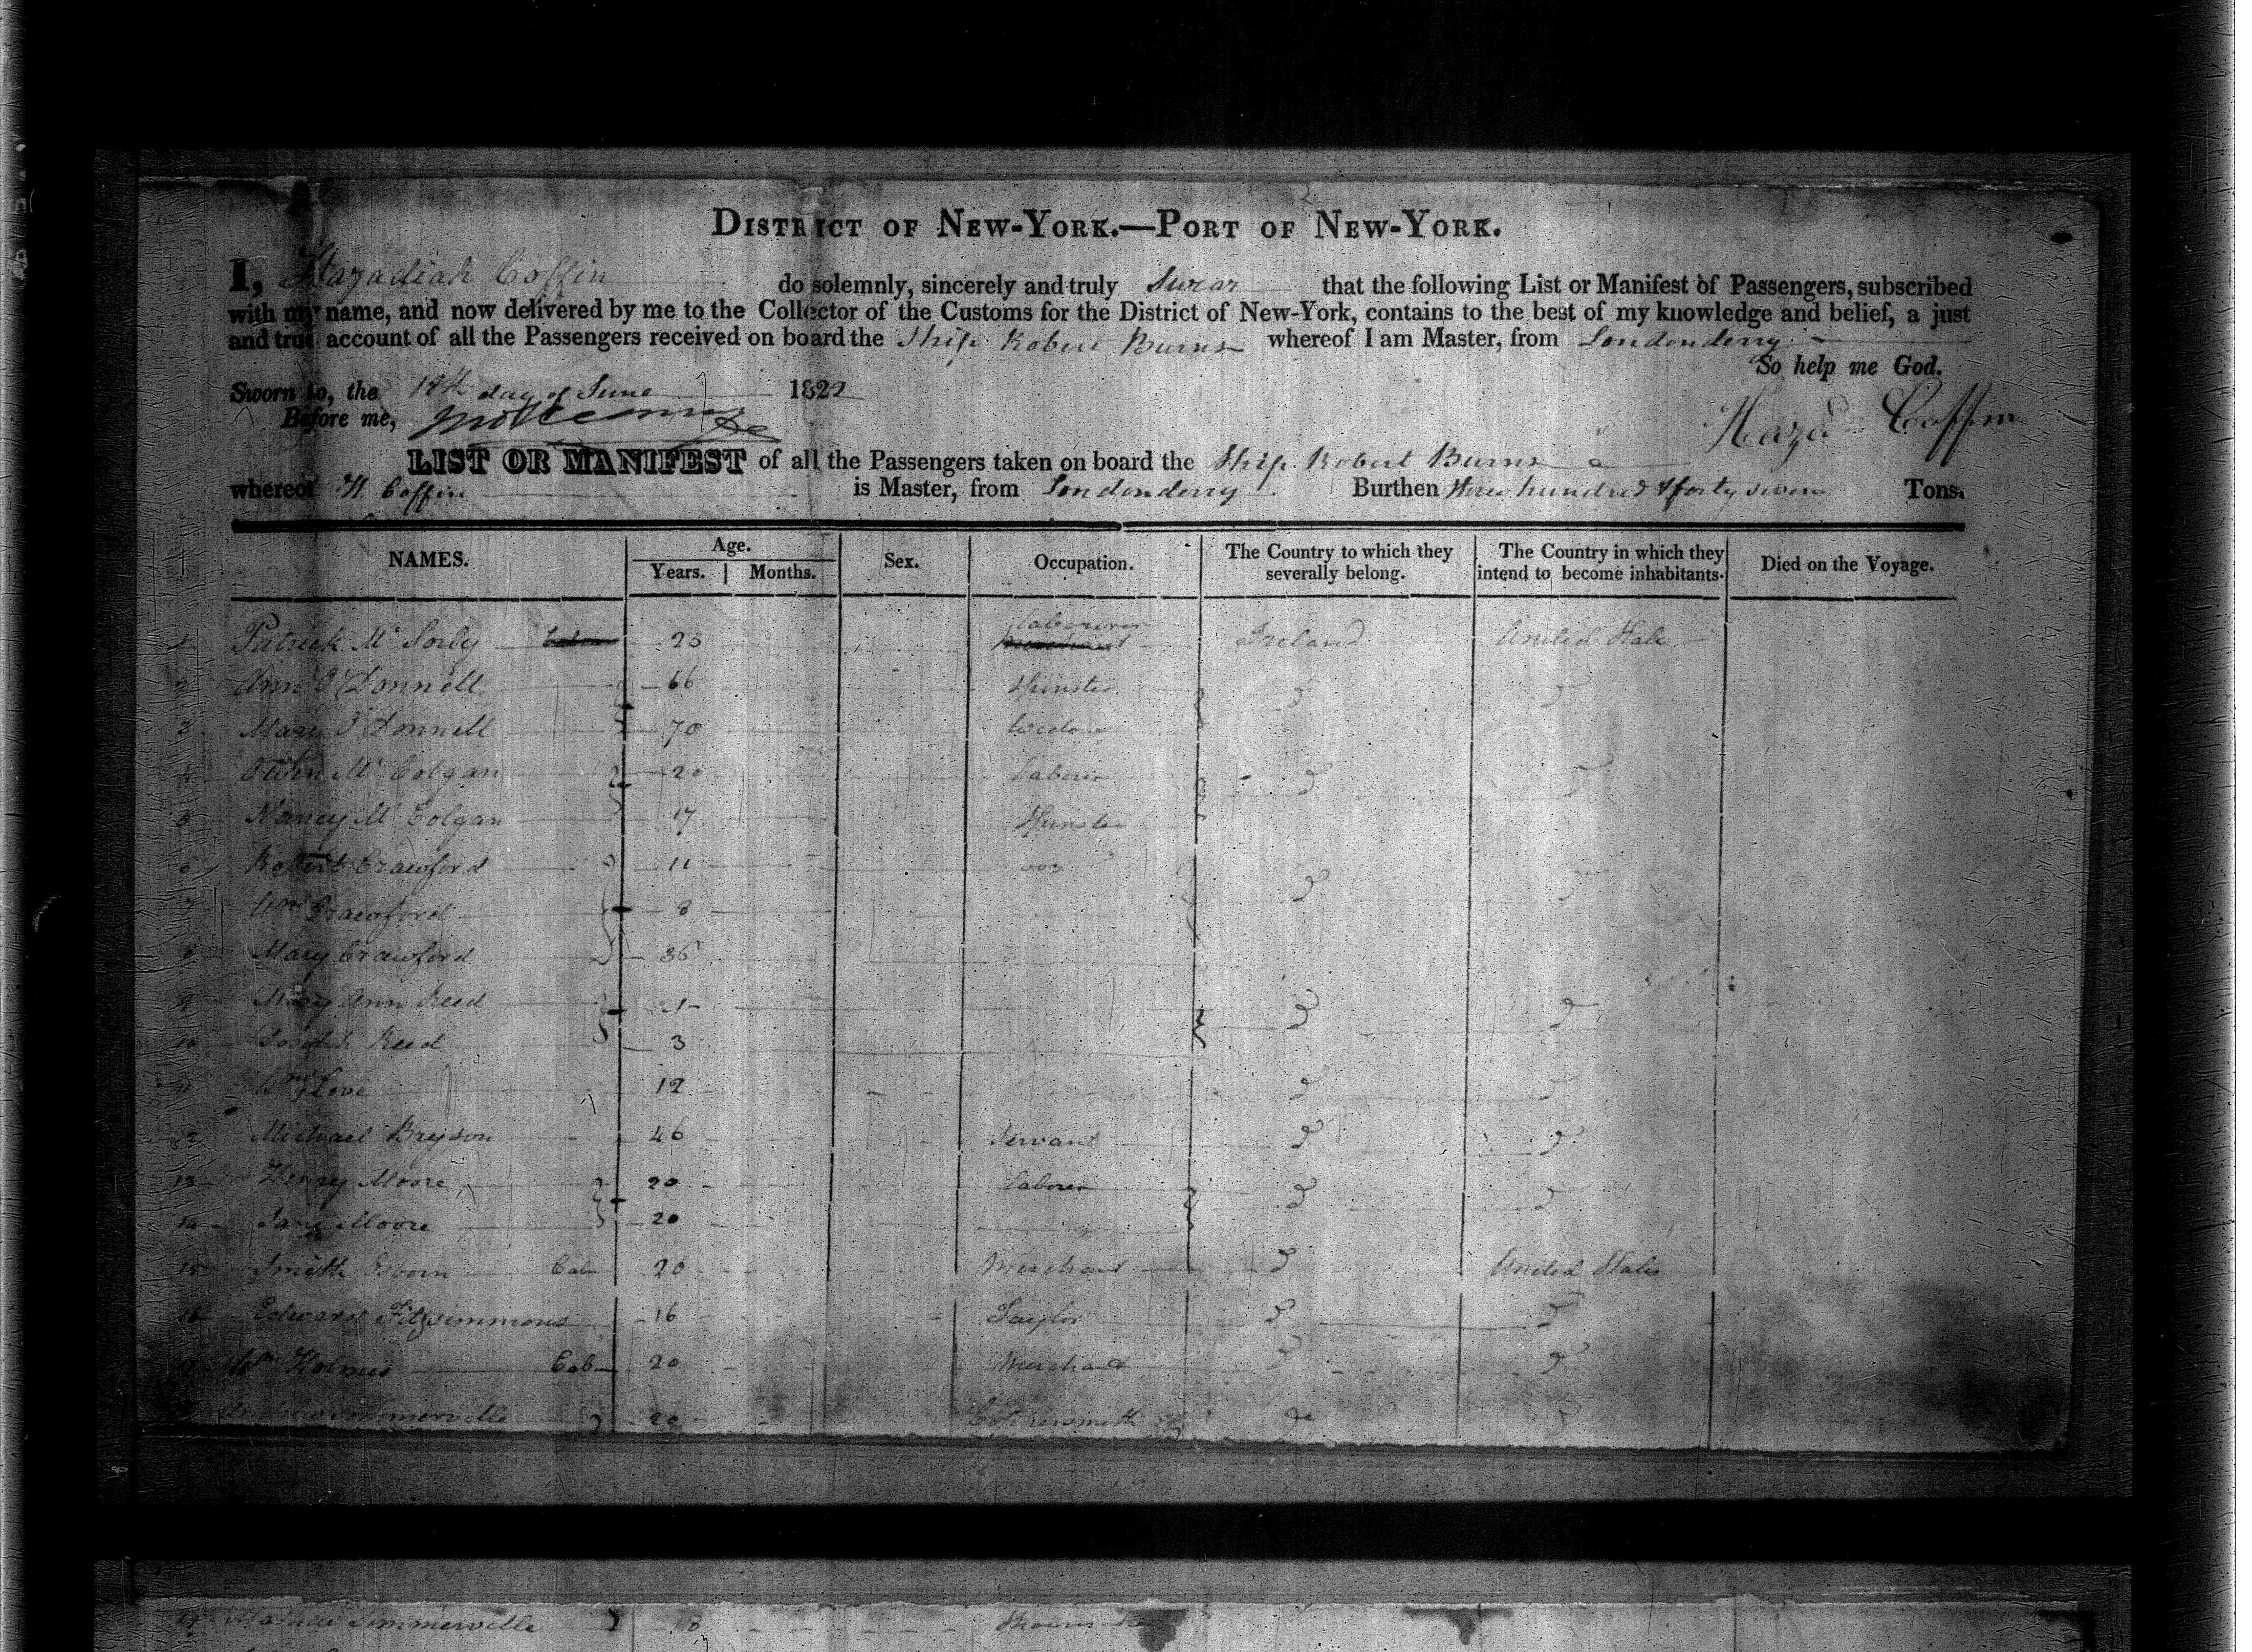 DISTRICT OF NEW-YORK.—PORT OF NEW-YORK.
I, Hazadiah Coffin do solemnly, sincerely and truly Swear that the following List or Manifest of Passengers, subscribed
with my name, and now delivered by me to the Collector of the Customs for the District of New-York, contains to the best of my knowledge and belief, a just
and true account of all the Passengers received on board the Ship Robert Burns whereof I am Master, from Londonderry
So help me God.
Sworn to, the 18th day of June 1822
Before me,
Hazd Coffin
LIST OR MANIFEST of all the Passengers taken on board the Ship Robert Burns
whereof H. Coffin is Master, from Londonderry Burthen three hundred & forty seven Tons.
NAMES. Age. Years. Months. Sex. Occupation. The Country to which they severally belong. The Country in which they intend to become inhabitants. Died on the Voyage.
1 Patrick Mc Sorley 25 Labourer Ireland United State
2 Ann O'Donnell 66 Spinster
3 Mary O'Donnell 70 Widow
Owen Mc Colgan 20 Laborer
5 Nancy Mc Colgan 17 Spinster
6 Robert Crawford 11
7 Wm Crawford 8
8 Mary Crawford 36
9 Mary Ann Reed
10 Joseph Reed 3
Wm Love 12
12 Michael Bryson 46 Servant
13 Henry Moore 20 Laborer
14 Jane Moore 20
15 Smith Osborn Cab 20 Merchant United States
16 Edward Fitzsimmons 16 Taylor
17 Wm Holmes Cab 20 Merchant
Sommerville 20 Coppersmith
19 Matilda Sommerville 18